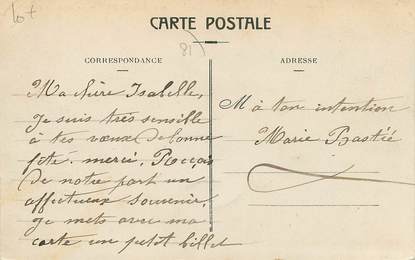 10 +
CARTE POSTALE
81
CORRESPONDANCE
Ma chère Isabelle,
Je suis très sensible
à tes vœux de bonne
fête. merci. Reçois
de notre part un
affectueux souvenir.
Je mets avec ma
carte un petit billet
ADRESSE
à ton intention
Marie Bastié